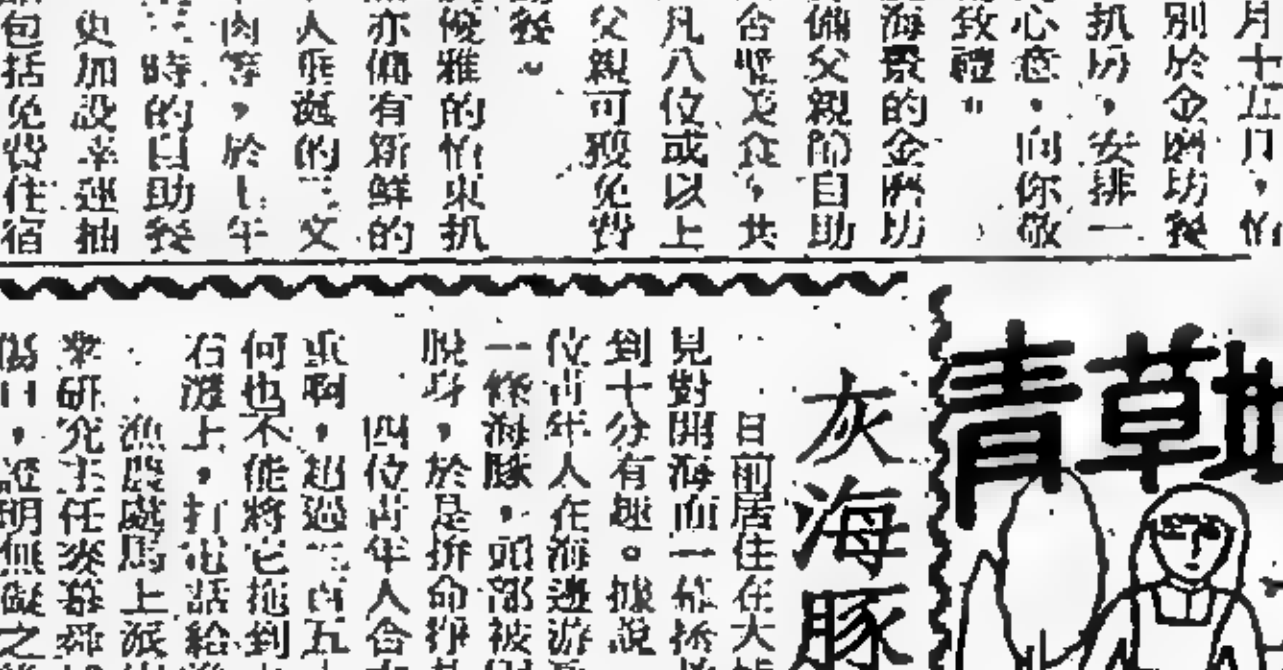 月十五日，怡
別於金磨坊餐
扒房，安排一
心意，向你敬
致禮。
海景的金磨坊
備父親節自助
合璧美食，共
凡八位或以上
父親可獲免費
餐。
俊雅的怡東扒
亦備有新鮮的
人垂涎的三文
肉等，於上午
時的自助餐
更加設幸運抽
包括免費住宿
青草地
灰海豚
日前居住在大
見對開海面一幕
到十分有趣。據說
位青年人在海邊游
一條海豚，頭部被
脫身，於是拚命掙
四位青年人合
重啊，超過二百五
何也不能將它拖到
石灘上，打電話給
漁農處馬上派
研究主任
傷口，證明無礙之